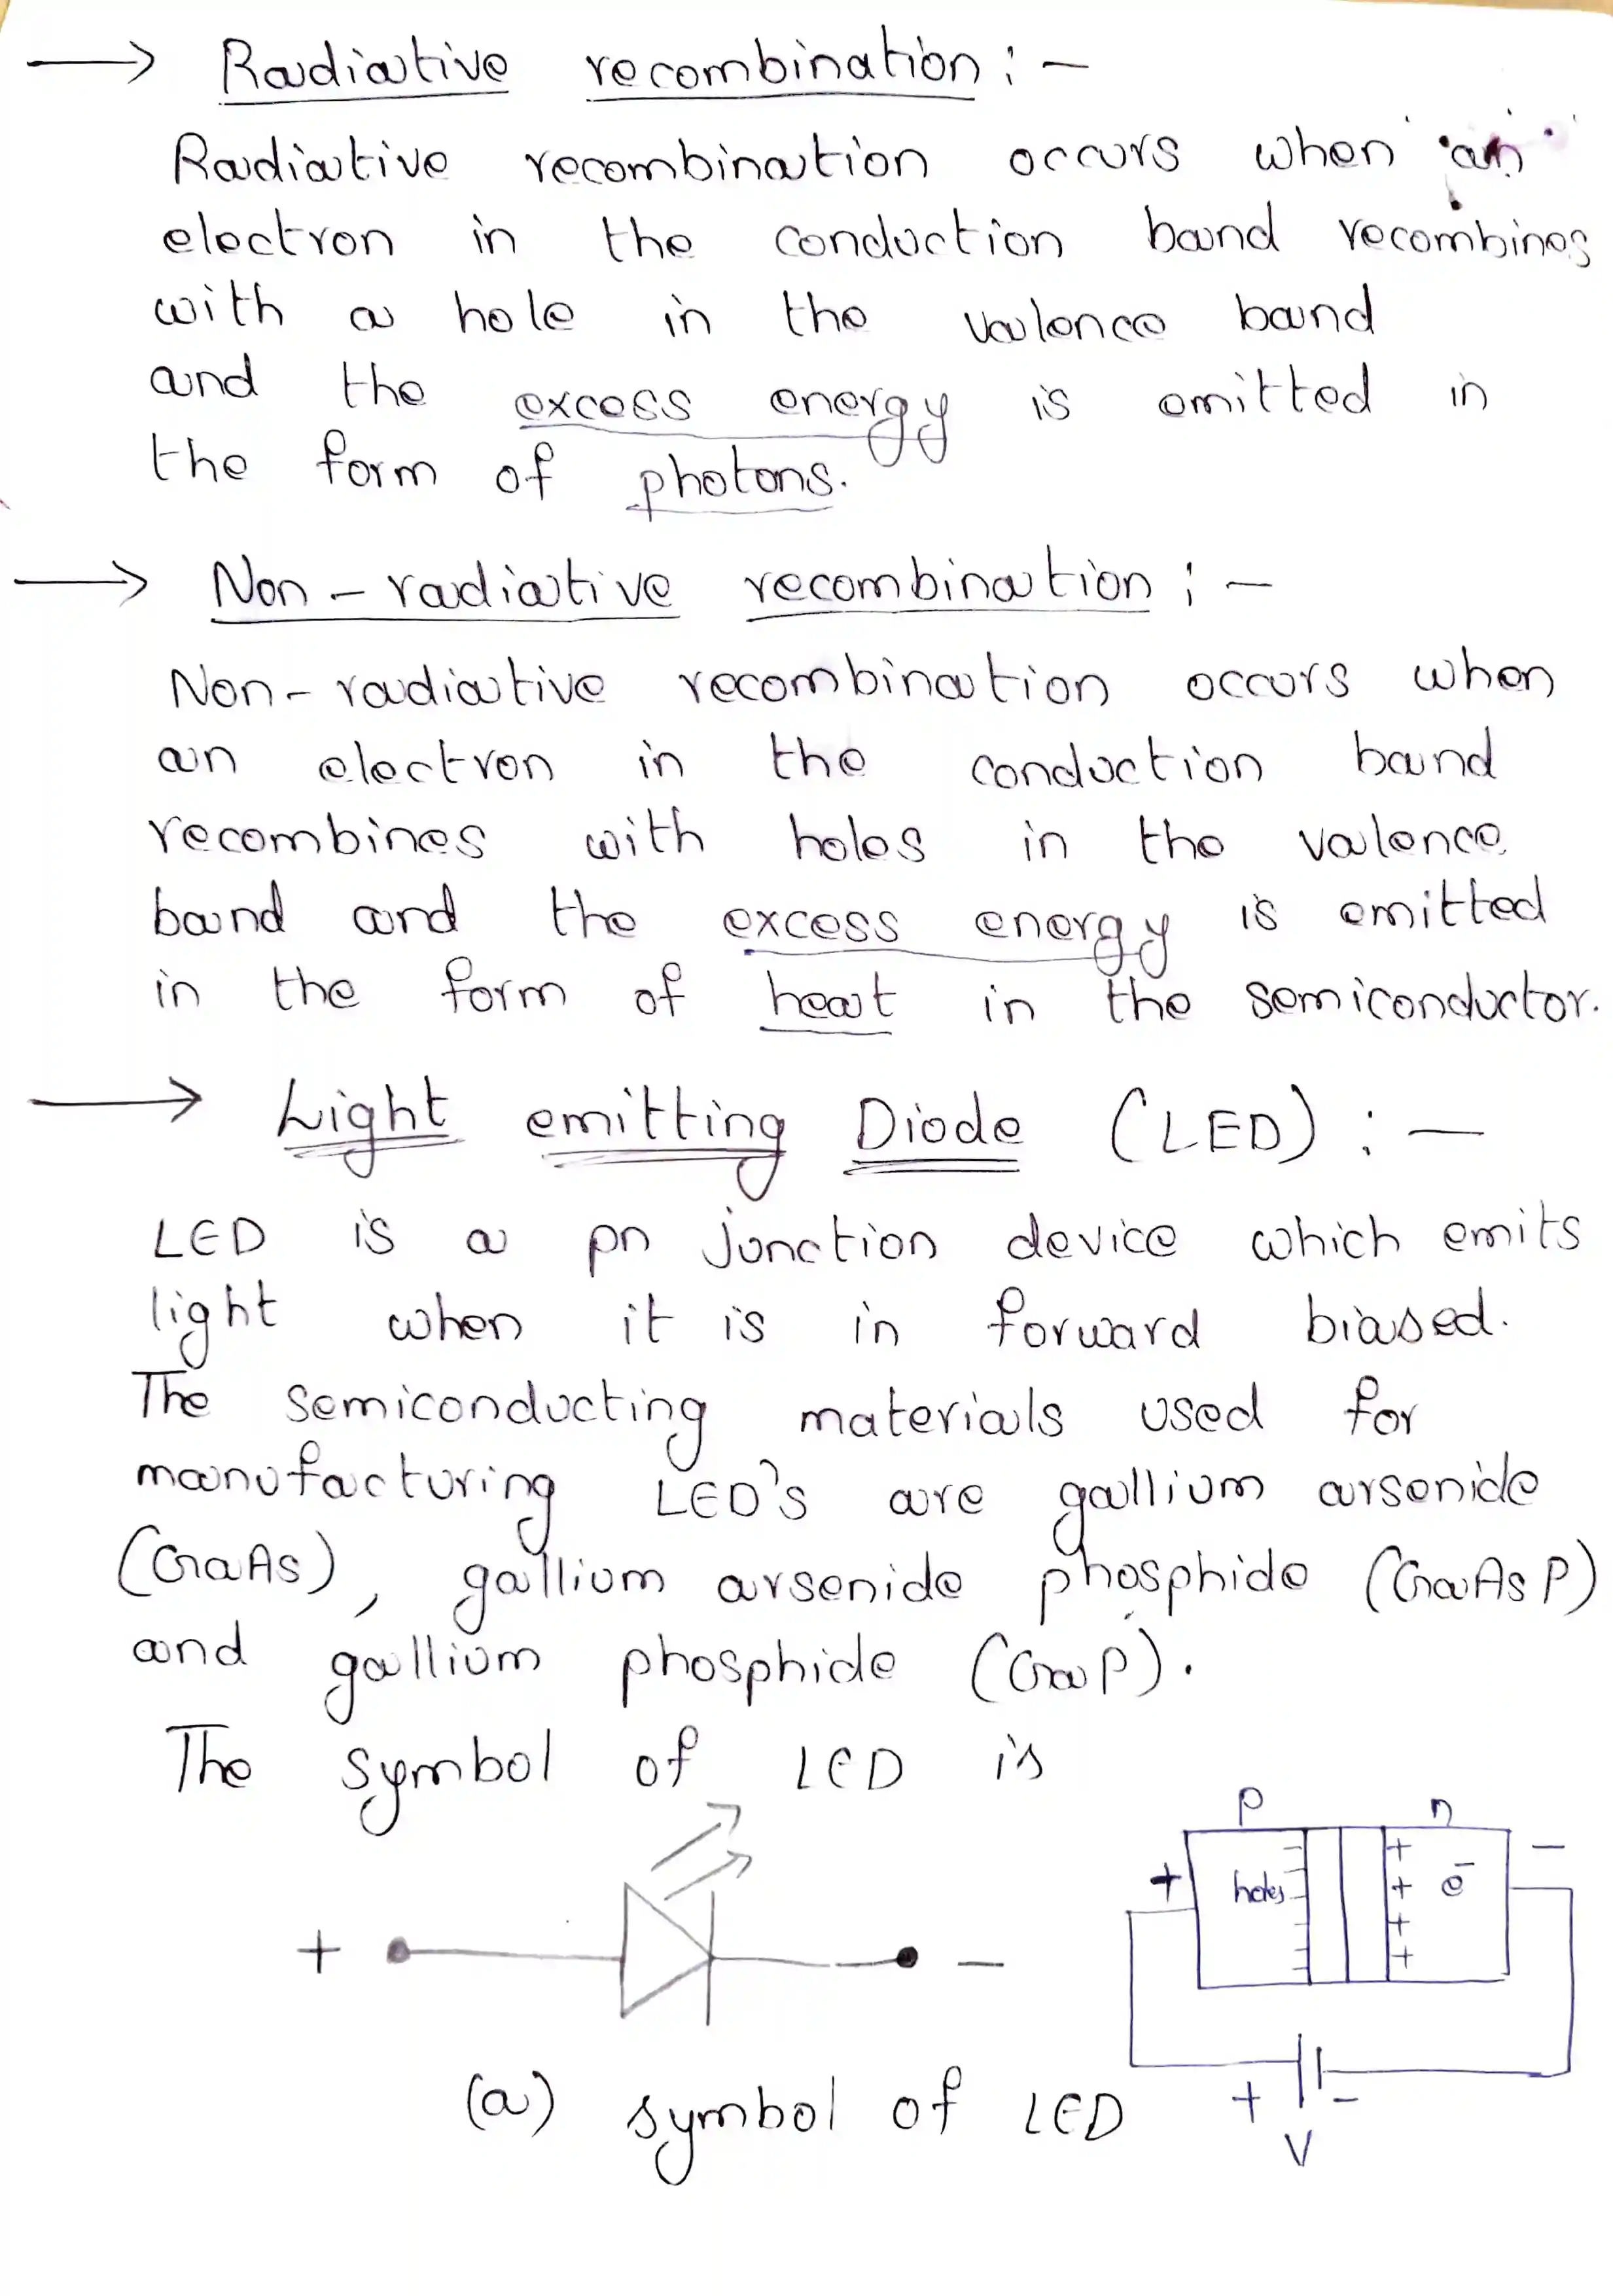 → Radiative recombination : -
Radiative recombination occurs when an
electron in the conduction band recombines
with a hole in the valence band
and the excess energy is emitted in
the form of photons.
→ Non - radiative recombination ; -
Non - radiative recombination occurs when
an electron in the conduction band
recombines with holes in the valence
band and the excess energy is emitted
in the form of heat in the semiconductor.
→ Light emitting Diode (LED) : -
LED is a pn junction device which emits
light when it is in forward biased.
The semiconducting materials used for
manufacturing LED's are gallium arsenide
(GaAs), gallium arsenide phosphide (GaAsP)
and gallium phosphide (GaP).
The symbol of LED is
p n
+ holes + + + + e⁻ -
+ -
+ -
V
(a) symbol of LED